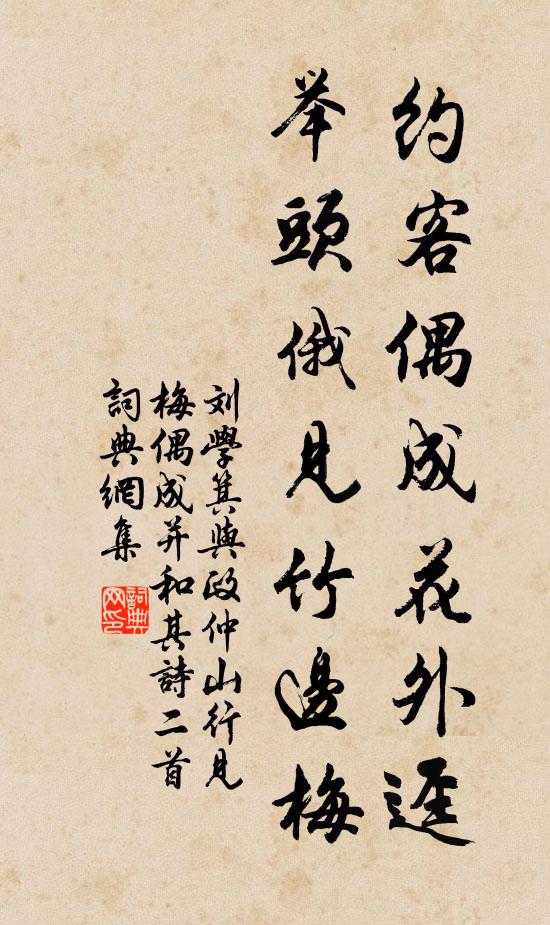 约客偶成花外逕
举頭俄見竹邊梅
刘學箕與政仲山行見
梅偶成并和其詩二首
詞典網集
詞典网印